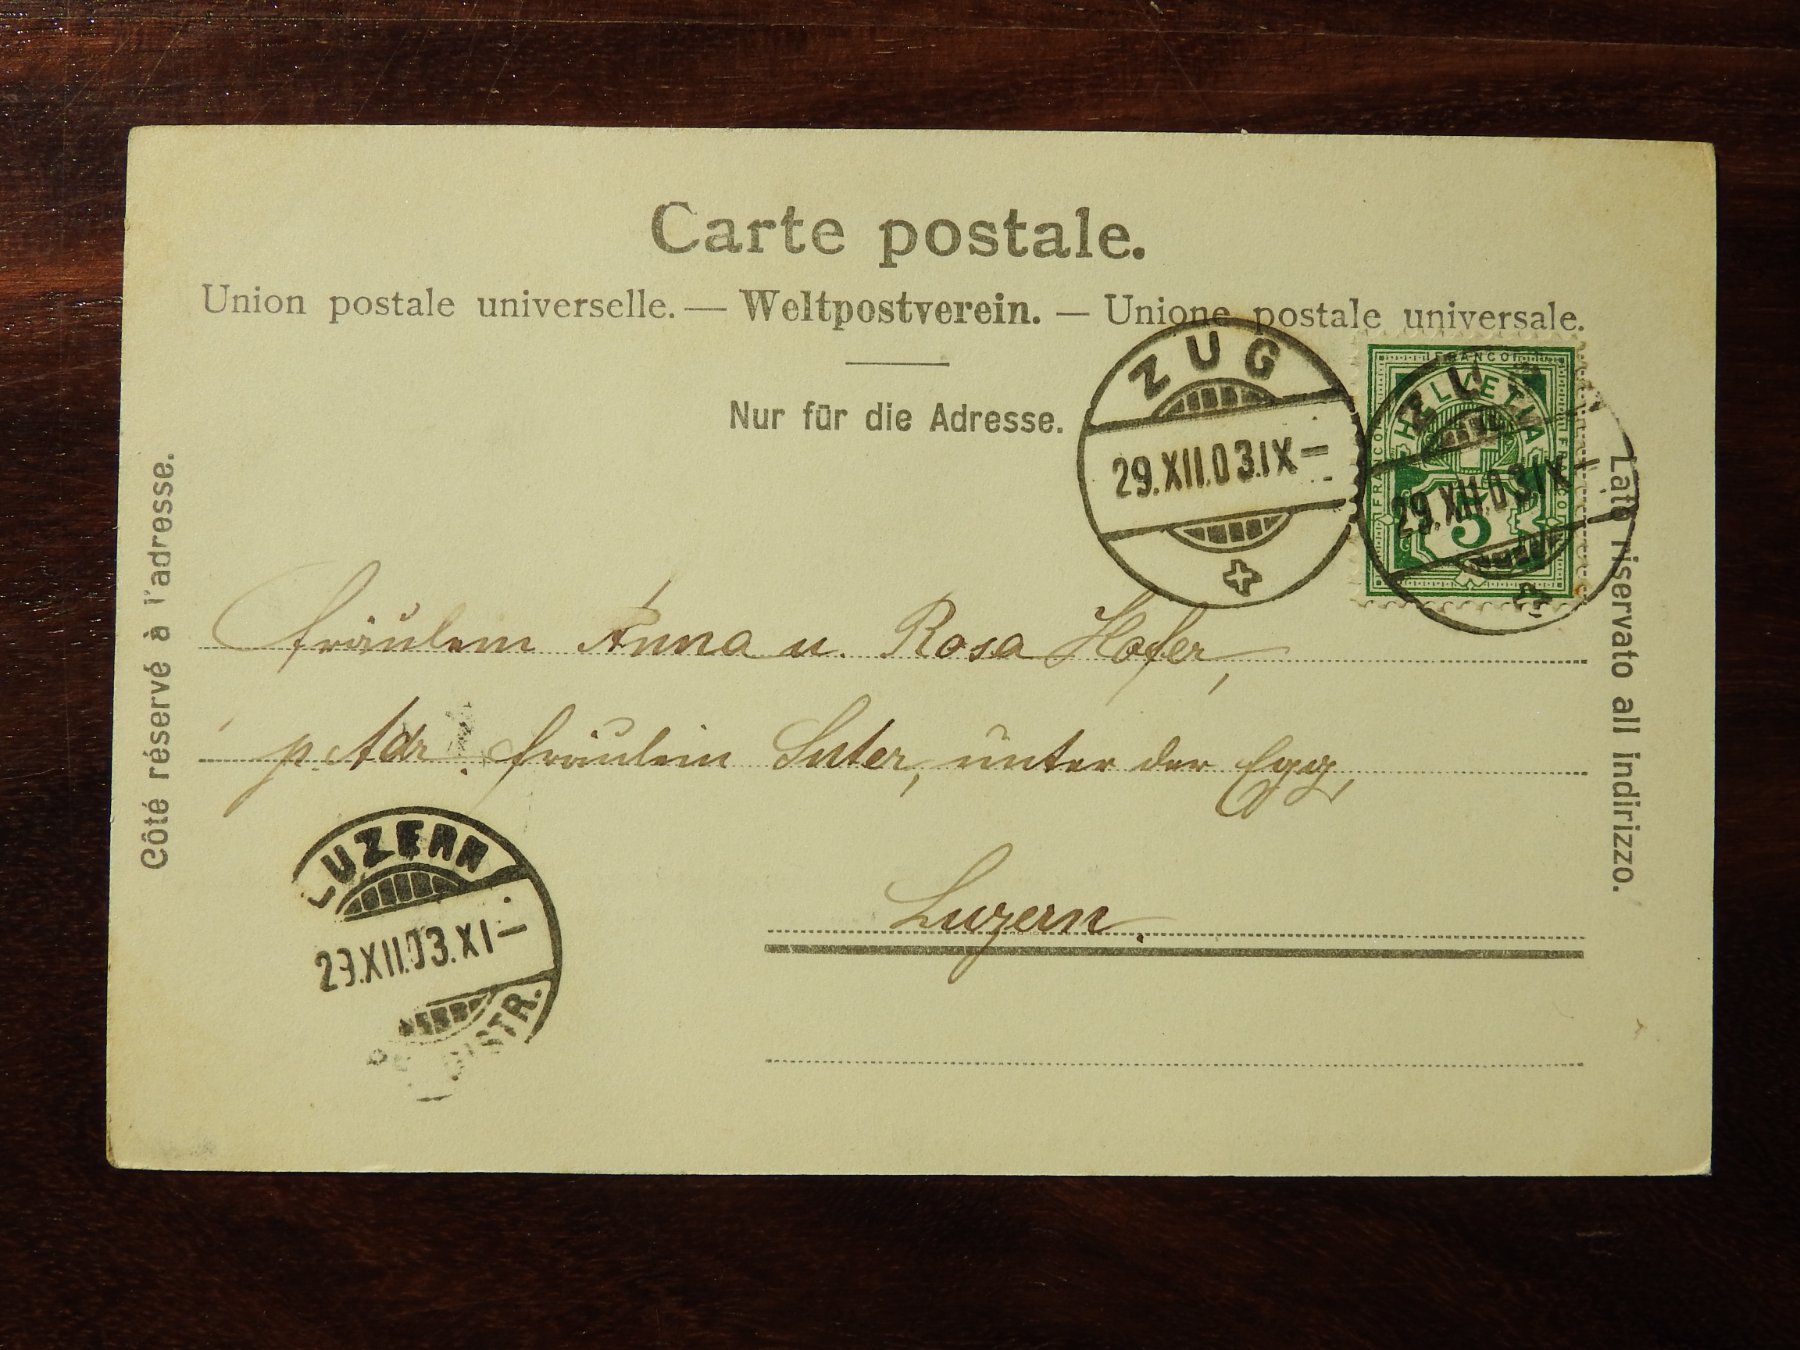 Carte postale.
Union postale universelle. — Weltpostverein. — Unione postale universale.
Nur für die Adresse.
Côté réservé à l'adresse.
Lato riservato all indirizzo.
ZUG
29.XII.03.IX–
FRANCO
HELVETIA
FRANCO
FRANCO
5
29.XII.03.IX–
Fräulein Anna u. Rosa Hofer,
p. Adr. Fräulein Suter, unter der Egg,
Luzern.
LUZERN
29.XII.03.XI–
DISTR.